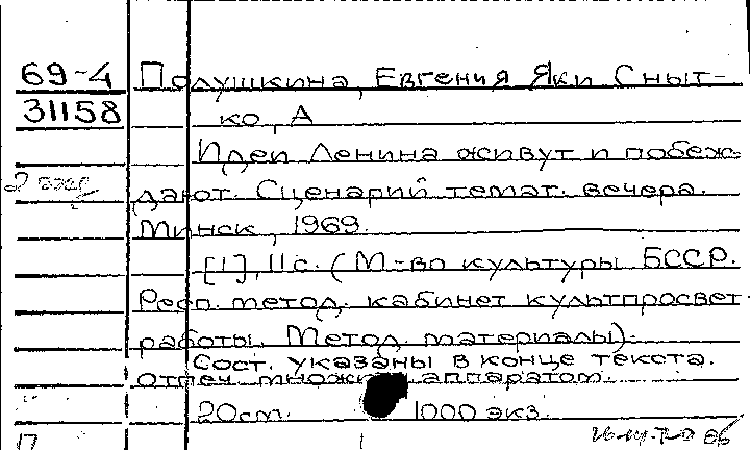 69-4 Полушкина, Евгения Яки Сныт-
31158 ко, А
Идеи Ленина живут и побеж-
2 экз дают. Сценарий темат. вечера.
Минск, 1969.
[1], 11с. (М-во культуры БССР.
Респ. метод. кабинет культпросвет
работы. Метод. материалы).
Сост. указаны в конце текста.
отпеч. множит. аппаратом.
20см. 1000 экз.
П